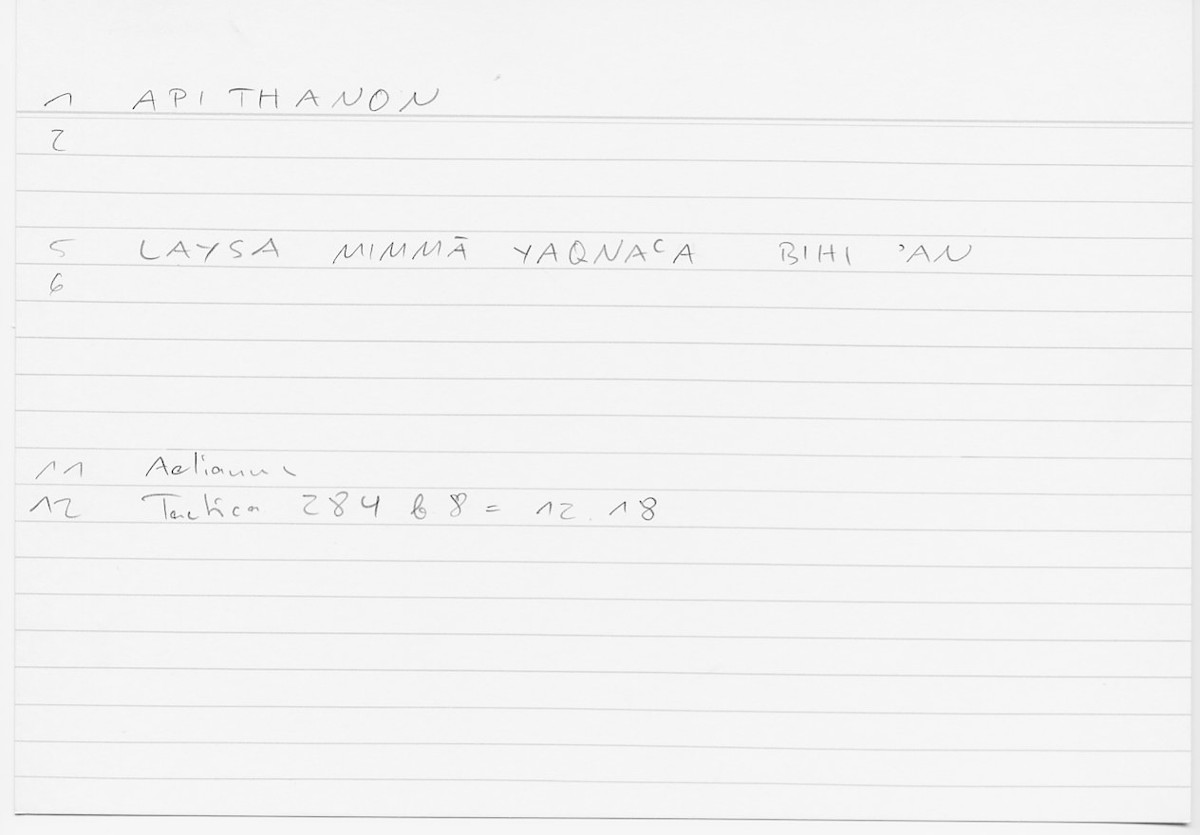 1 APITHANON
2
5 LAYSA MIMMĀ YAQNAʿA BIHI ʾAN
6
11 Aelianus
12 Tactica 284 b 8 = 12.18